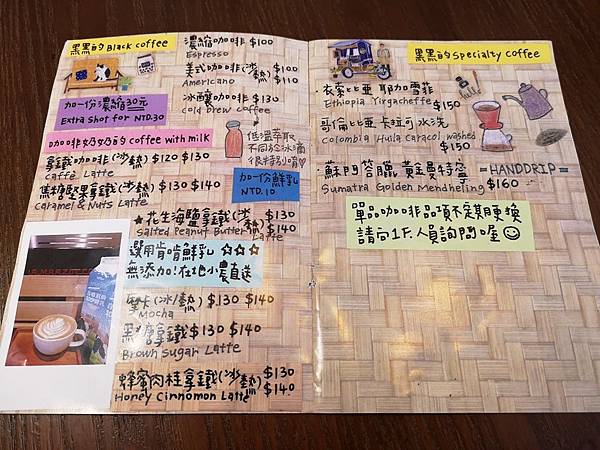 黑黑的Black coffee
濃縮咖啡 $100
Espresso
美式咖啡(冰/熱) $100
Americano $110
冰釀咖啡 $130
cold brew coffee
加一份濃縮30元
Extra Shot for NTD.30
低溫萃取
不同於冰滴
很特別唷
咖啡奶奶的coffee with milk
拿鐵咖啡(冰/熱) $120 $130
Caffè Latte
加一份鮮乳
NTD.10
焦糖堅果拿鐵(冰/熱) $130 $140
Caramel & Nuts Latte
★花生海鹽拿鐵(冰/熱) $130
Salted Peanut Butter Latte $140
選用啃啃鮮乳☆☆☆
無添加!在地小農直送
摩卡(冰/熱) $130 $140
Mocha
黑糖拿鐵 $130 $140
Brown Sugar Latte
蜂蜜肉桂拿鐵(冰/熱) $130
Honey Cinnomon Latte $140
黑黑的Specialty coffee
·衣索比亞 耶加雪菲
Ethiopia Yirgacheffe $150
·哥倫比亞 卡拉可 水洗
Colombia Huila Caracol washed
$150
·蘇門答臘 黃金曼特寧
Sumatra Golden Mendheling $160
HANDDRIP
單品咖啡品項不定期更換
請向1F.人員詢問喔